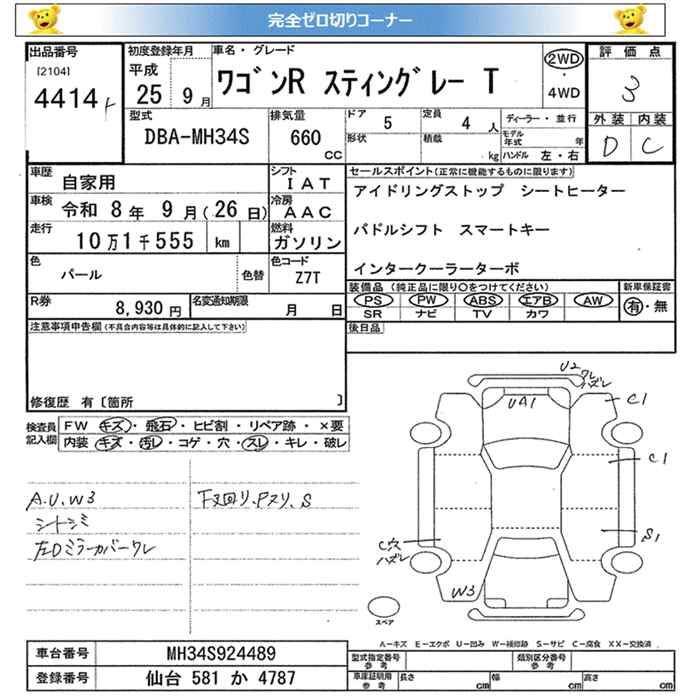 完全ゼロ切りコーナー
出品番号 初度登録年月 車名・グレード 評価点
[2104] 平成 ワゴンR スティングレー T 2WD
4414 25 9月 ・ 4WD 3
型式 排気量 ドア 5 定員 4 人 ディーラー・並行 外装 内装
DBA-MH34S 660 CC 形状 積載 kg モデル年式 年 D C
ハンドル 左・右
車歴 自家用 シフト IAT セールスポイント(正常に機能するものに限ります)
車検 令和 8年 9月(26日) 冷房 AAC アイドリングストップ シートヒーター
走行 10万1千555 km 燃料 ガソリン パドルシフト スマートキー
色 パール 色替 色コード Z7T インタークーラーターボ
R券 8,930円 名変通知期限 月 日 装備品(純正品に限り○をつけてください) 新車保証書
PS PW ABS エアB AW 有・無
SR ナビ TV カワ
注意事項申告欄(不具合内容等は具体的に記入して下さい) 後日品
修復歴 有〔箇所 〕
検査員記入欄 FW キズ・飛石・ヒビ割・リペア跡・×要
内装 キズ・汚レ・コゲ・穴・スレ・キレ・破レ
U2 ワレ ハズレ
UA1 C1
C1
A.U.W3 下回リ.Pスリ.S
シートシミ S1
左Dミラーカバーワレ C穴 ハズレ
W3
スペア
A-キズ E-エクボ U-凹み W-補修跡 S-サビ C-腐食 XX-交換済
車台番号 MH34S924489 型式指定番号参考 類別区分番号参考
登録番号 仙台 581 か 4787 車庫証明用参考 長さ cm 幅 cm 高さ cm